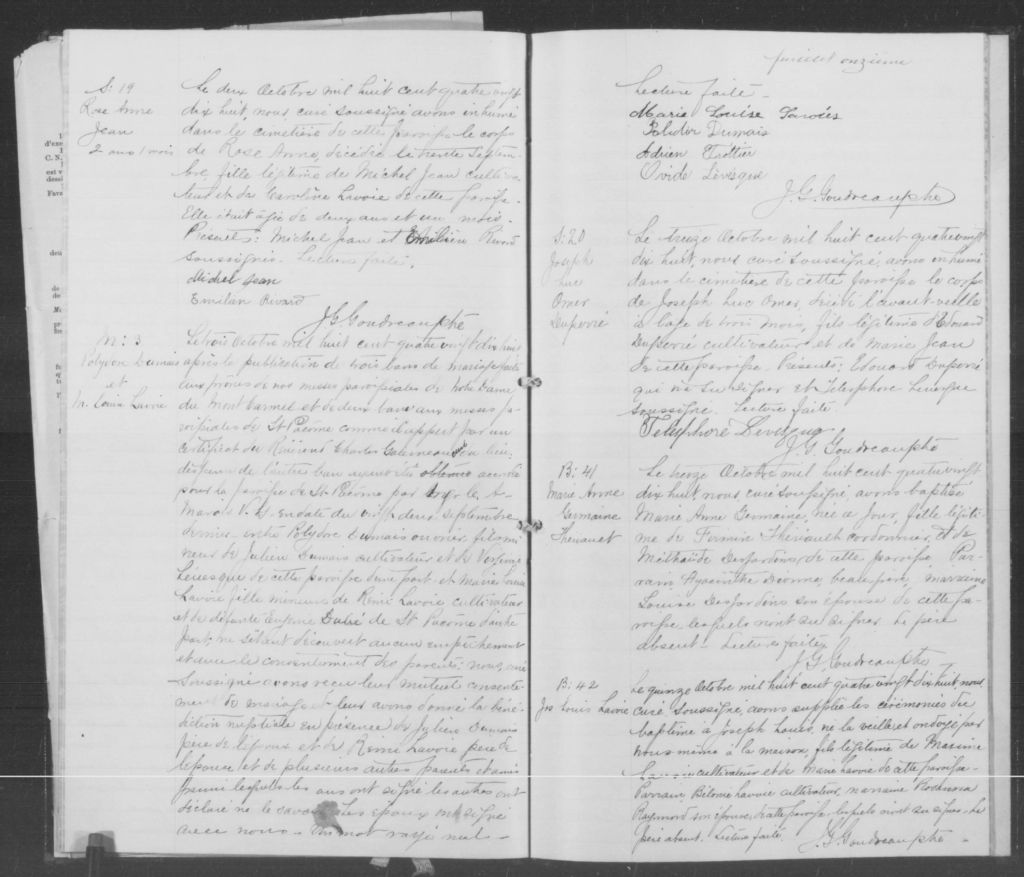 feuillet onzième
S: 19
Rose Anna
Jean
2 ans 1 mois
Le deux Octobre mil huit cent quatre vingt
dix huit, nous curé soussigné avons inhumé
dans le cimetière de cette paroisse le corps
de Rose Anna, décédée le trente Septem-
bre, fille légitime de Michel Jean cultiva-
teur et de Caroline Lavoie de cette paroisse.
Elle était âgée de deux ans et un mois.
Présents: Michel Jean et Emilien Rivard
soussignés. Lecture faite.
Michel Jean
Emilien Rivard
J. G. Goudreau ptre
M: 3
Polydor Dumais
et
M. Louise Lavoie
Le trois Octobre mil huit cent quatre vingt dix huit
après la publication de trois bans de mariage faite
aux prônes de nos messes paroissiales de Notre Dame
du Mont Carmel et de deux bans aux messes pa-
roissiales de St Pacôme comme il appert par un
certificat du Révérend Charles Galerneau
dispense de l'autre ban accordée
pour la paroisse de St Pacôme par Mgr
Marois V. G. en date du vingt deux septembre
dernier entre Polydor Dumais ouvrier, fils mi-
neur de Julien Dumais cultivateur et de
Lévesque de cette paroisse d'une part et Marie Louise
Lavoie fille mineure de Rémi Lavoie cultivateur
et de défunte Eugénie Dubé de St Pacôme d'autre
part; ne s'étant découvert aucun empêchement
et avec le consentement des parents; nous, curé
soussigné avons reçu leur mutuel consente-
ment de mariage et leur avons donné la béné-
diction nuptiale en présence de Julien Dumais
père de l'époux et de Rémi Lavoie père de
l'épouse et de plusieurs autres parents et amis
parmi lesquels les uns ont signé les autres ont
déclaré ne le savoir. Les époux ont signé
avec nous. Un mot rayé nul.
Lecture faite
Marie Louise Lavoie
Polidor Dumais
Adrien Trottier
Ovide Lévesque
J. G. Goudreau ptre
S: 20
Joseph
Luc
Omer
Duperré
Le treize Octobre mil huit cent quatre vingt
dix huit, nous curé soussigné, avons inhumé
dans le cimetière de cette paroisse le corps
de Joseph Luc Omer, décédé l'avant-veille
à l'age de trois mois, fils légitime d'Edouard
Duperré cultivateur et de Marie Jean
de cette paroisse. Présents: Edouard Duperré
qui n'a su signer et Télesphore Lévesque
soussigné. Lecture faite.
Telesphore Levesque
J. G. Goudreau ptre
B: 41
Marie Anne
Germaine
Thériault
Le treize Octobre mil huit cent quatre vingt
dix huit nous, curé soussigné, avons baptisé
Marie Anne Germaine, née ce jour, fille légiti-
me de Firmin Thériault cordonnier, et de
Mathilde Desjardins, de cette paroisse. Par-
rain, Hyacinthe beau père, marraine
Louise Desjardins son épouse de cette pa-
roisse lesquels n'ont su signer. Le père
absent. Lecture faite
J. G. Goudreau ptre
B: 42
Jos Louis Lavoie
Le quinze Octobre mil huit cent quatre vingt dix huit nous
curé soussigné, avons supplée les cérémonies du
baptême à Joseph Louis, né la veille et ondoyé par
nous même à la maison, fils légitime de Maxime
Lavoie cultivateur et de Marie Lavoie de cette paroisse.
Parrain, Lavoie cultivateur, marraine
Raymond son épouse, de cette paroisse, lesquels n'ont su signer. Le
père absent. Lecture faite.
J. G. Goudreau ptre